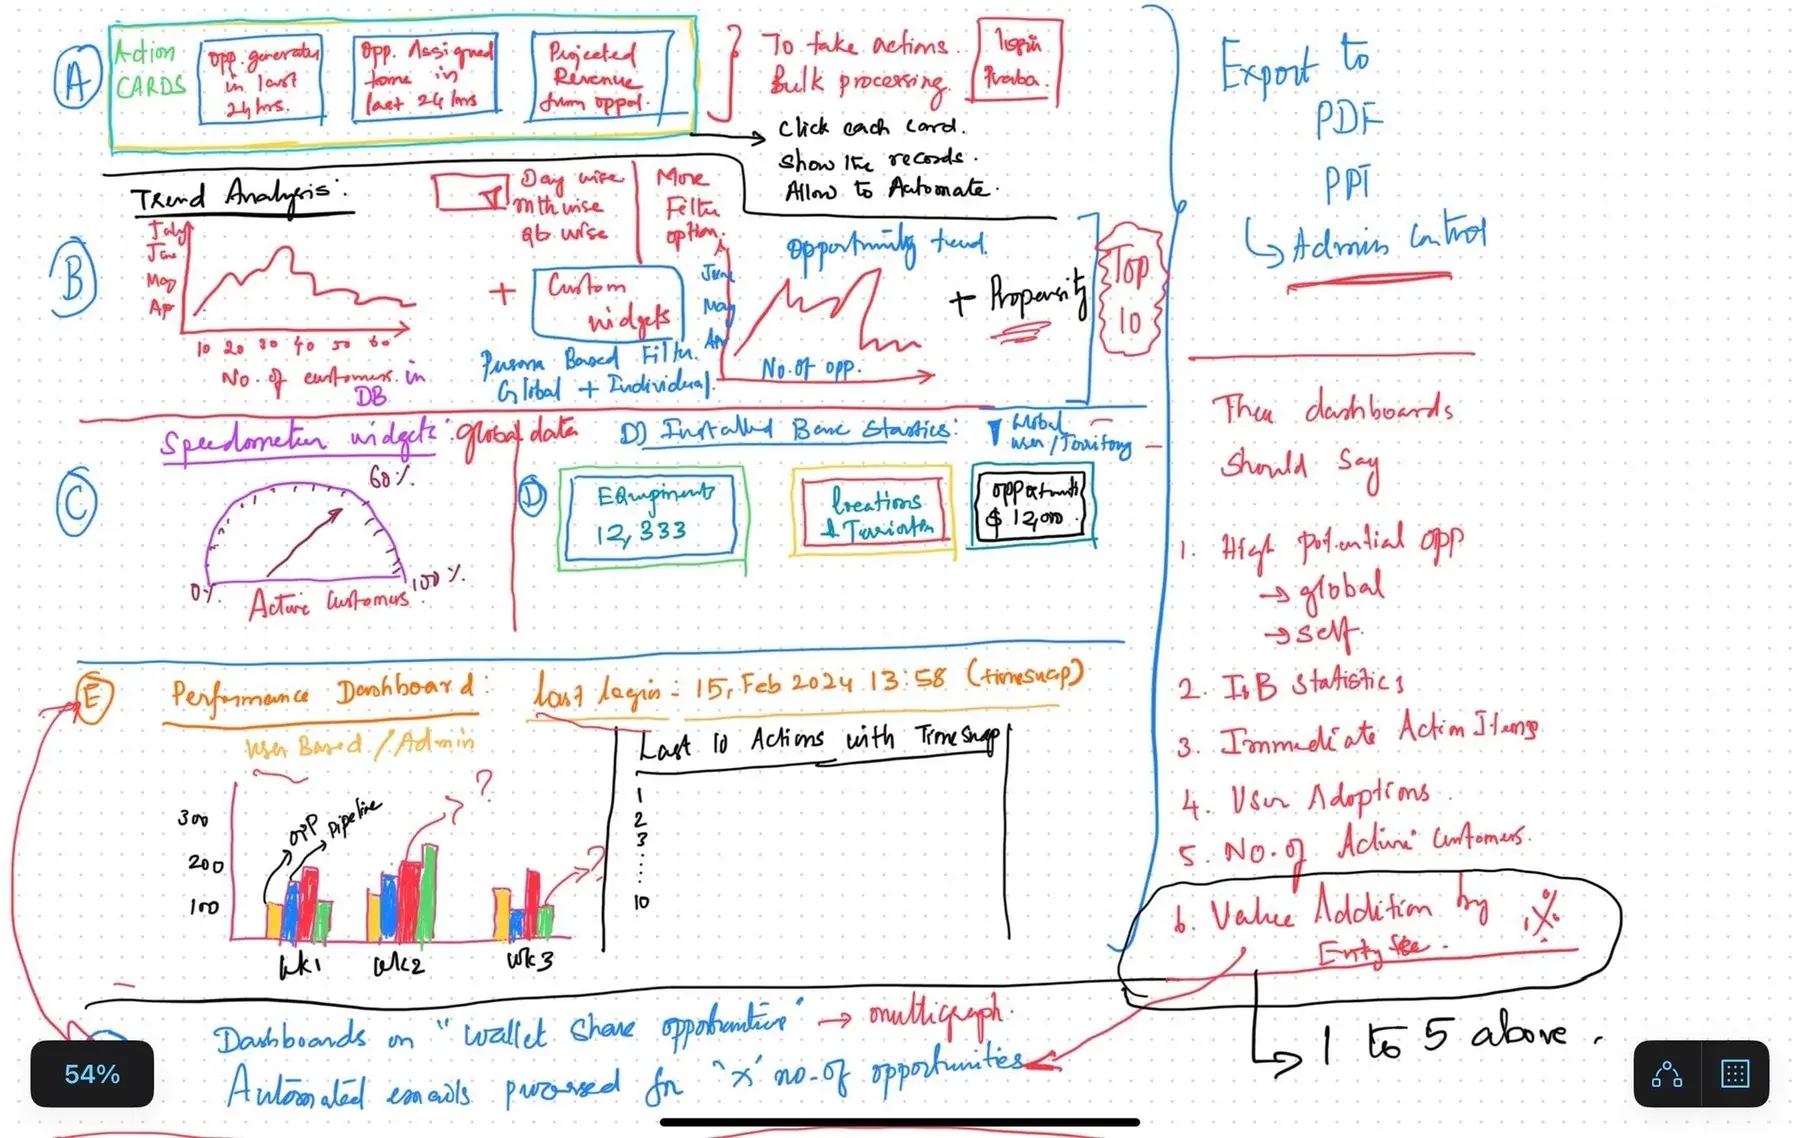 A
Action
CARDS
opp. generated
in last
24 hrs.
Opp. Assigned
to me in
last 24 hrs
Projected
Revenue
from oppol.
To take actions.
Bulk processing.
login
Click each card.
Show the records.
Allow to Automate.
Trend Analysis:
Day wise
mth wise
qtr wise
More
Filter
option.
B
July
June
May
Apr
10 20 30 40 50 60
No. of customers in
DB
+
Custom
widgets
Persona Based Filter.
Global + Individual.
Opportunity trend.
June
May
Apr
No. of opp.
+ Propensity
Top
10
Speedometer widgets: global data
C
60%
0%
100%
Active Customers
D) Installed Base Stastics:
Global
user/Territory
D
Equipments
12,333
Locations
& Territories
opportunity
$ 12,000
E
Performance Dashboard:
User Based / Admin
last login - 15, Feb 2024 13:58 (timesnap)
300
200
100
OPP
pipeline
?
?
Wk1
Wk2
Wk3
Last 10 Actions with Timesnap
1
2
3
10
Dashboards on "Wallet Share opportunities" → multigraph.
Automated emails processed for "x" no. of opportunities
Export to
PDF
PPT
Admin control
Then dashboards
Should Say
1. High potential opp
→ global
→ self.
2. IB Statistics
3. Immediate Action Items
4. User Adoptions.
5. No. of Active Customers.
6. Value Addition by
Entytle.
1 to 5 above.
54%